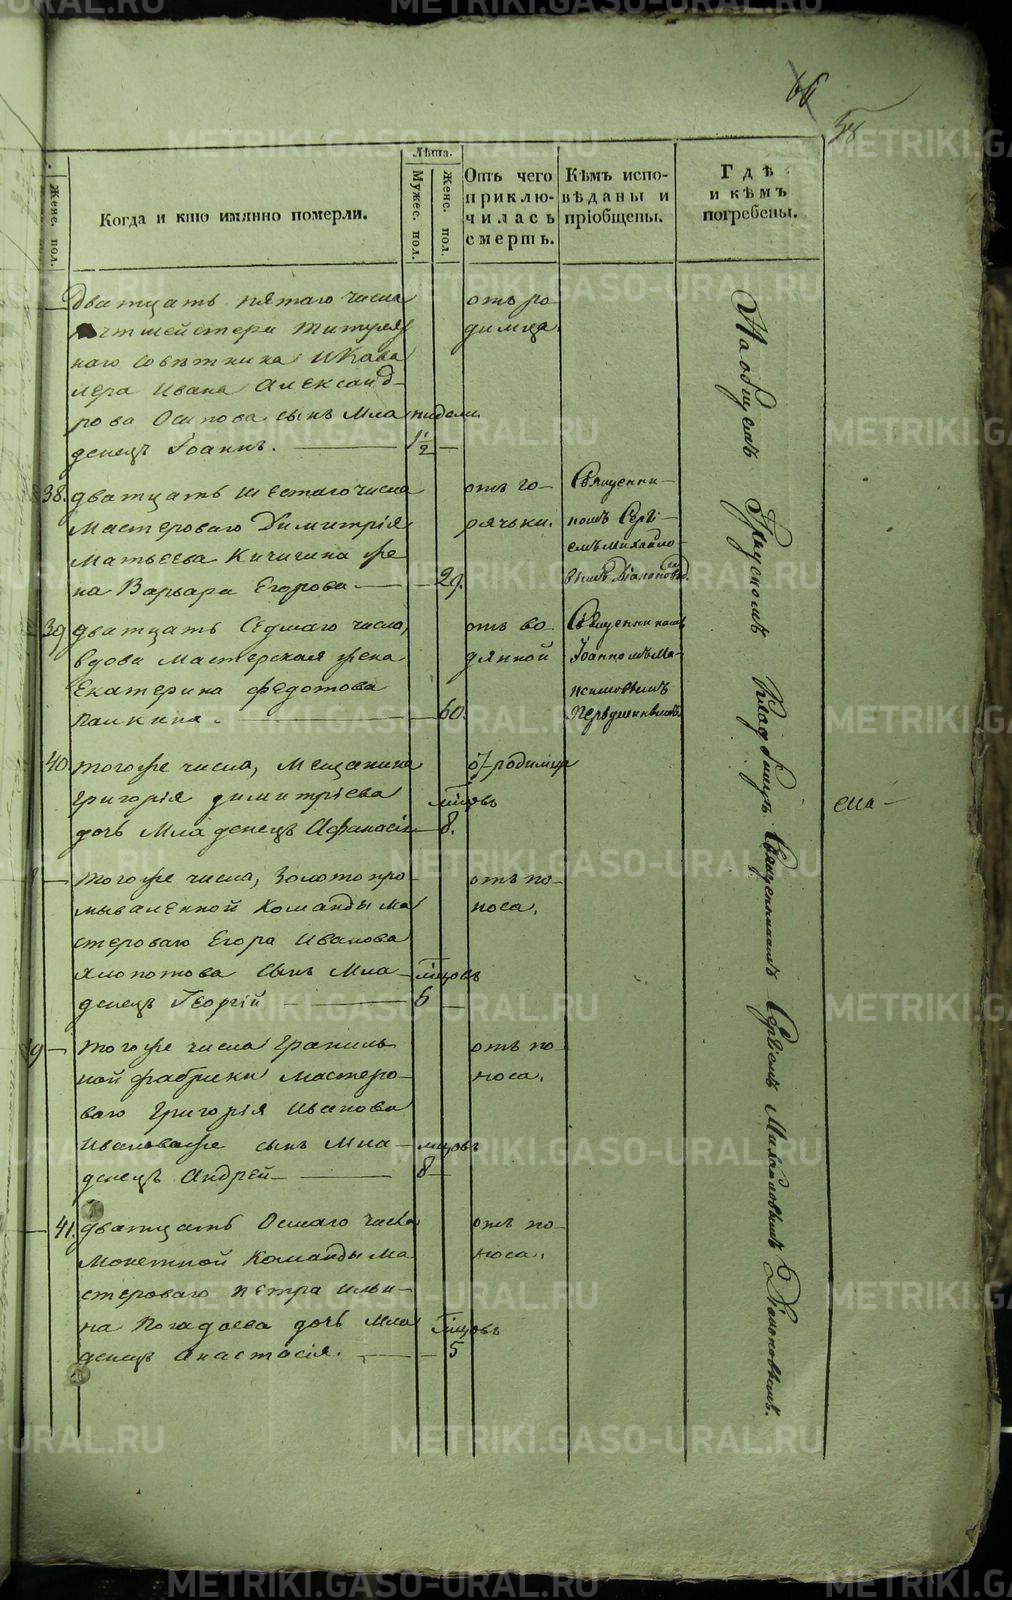 66
58
Женс. пол.
Когда и кто имянно померли.
Лѣта.
Мужес. пол.
Женс. пол.
Отъ чего
приклю-
чилась
смерть.
Кѣмъ испо-
вѣданы и
пріобщены.
Гдѣ
и кѣмъ
погребены.
Дватцать пятаго числа
отъ ро
димца.
наго Совѣтника и Кава
лера Ивана Александ-
рова Осипова сынъ Мла
недели
денецъ Іоаннъ.
1 1/2
38. дватцать шестаго числа
мастероваго Димитрія
Матвѣева Кичигина же
на Варвара Егорова
29.
отъ го-
рячьки.
Священни-
комъ Сергі-
емъ Михайло-
вымъ Діаконовым
39. дватцать Седмаго числа,
вдова мастерская жена
Екатерина Федотова
Палкина.
60.
отъ во
дянной
Священникомъ
Іоанномъ Ма-
ксимовымъ
40. тогоже числа, Мещанина
Григорія Димитріева
дочь Младенецъ Афанасія
мцовъ
8.
отъ родимца
тогоже числа, Золотопро-
мываленной Команды ма
стероваго Егора Иванова
сынъ Мла-
денецъ Георгій
мцовъ
6
отъ по-
носа.
9 тогоже числа Граниль
ной фабрики мастеро-
ваго Григорія Иванова
сынъ Мла-
денецъ Андрей
мцовъ
8
отъ по-
носа.
41. дватцать Осмаго числа
Монетной Команды ма
стероваго Петра Ильи-
на Погадаева дочь Мла
денецъ Анастасія.
мцовъ
5
отъ по-
носа.
На общемъ
кладбищѣ Священникомъ Сергіемъ Михайловымъ Діаконовымъ.
METRIKI.GASO-URAL.RU